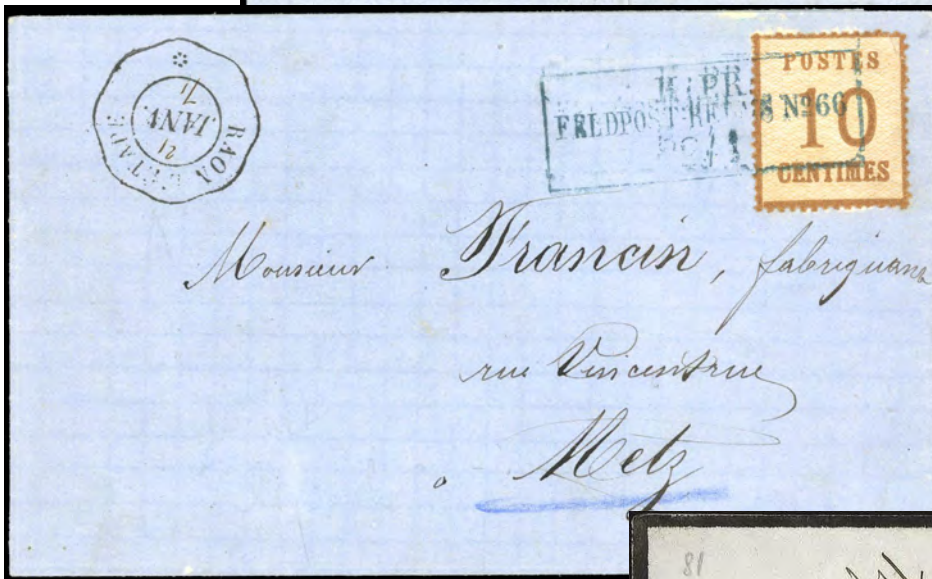 RAON L'ETAPE
21
JANV.
71
K: PR.
FELDPOST-RELAIS №66
POSTES
10
CENTIMES
Monsieur Francin, fabriquant
rue Vincentrue
a Metz
81